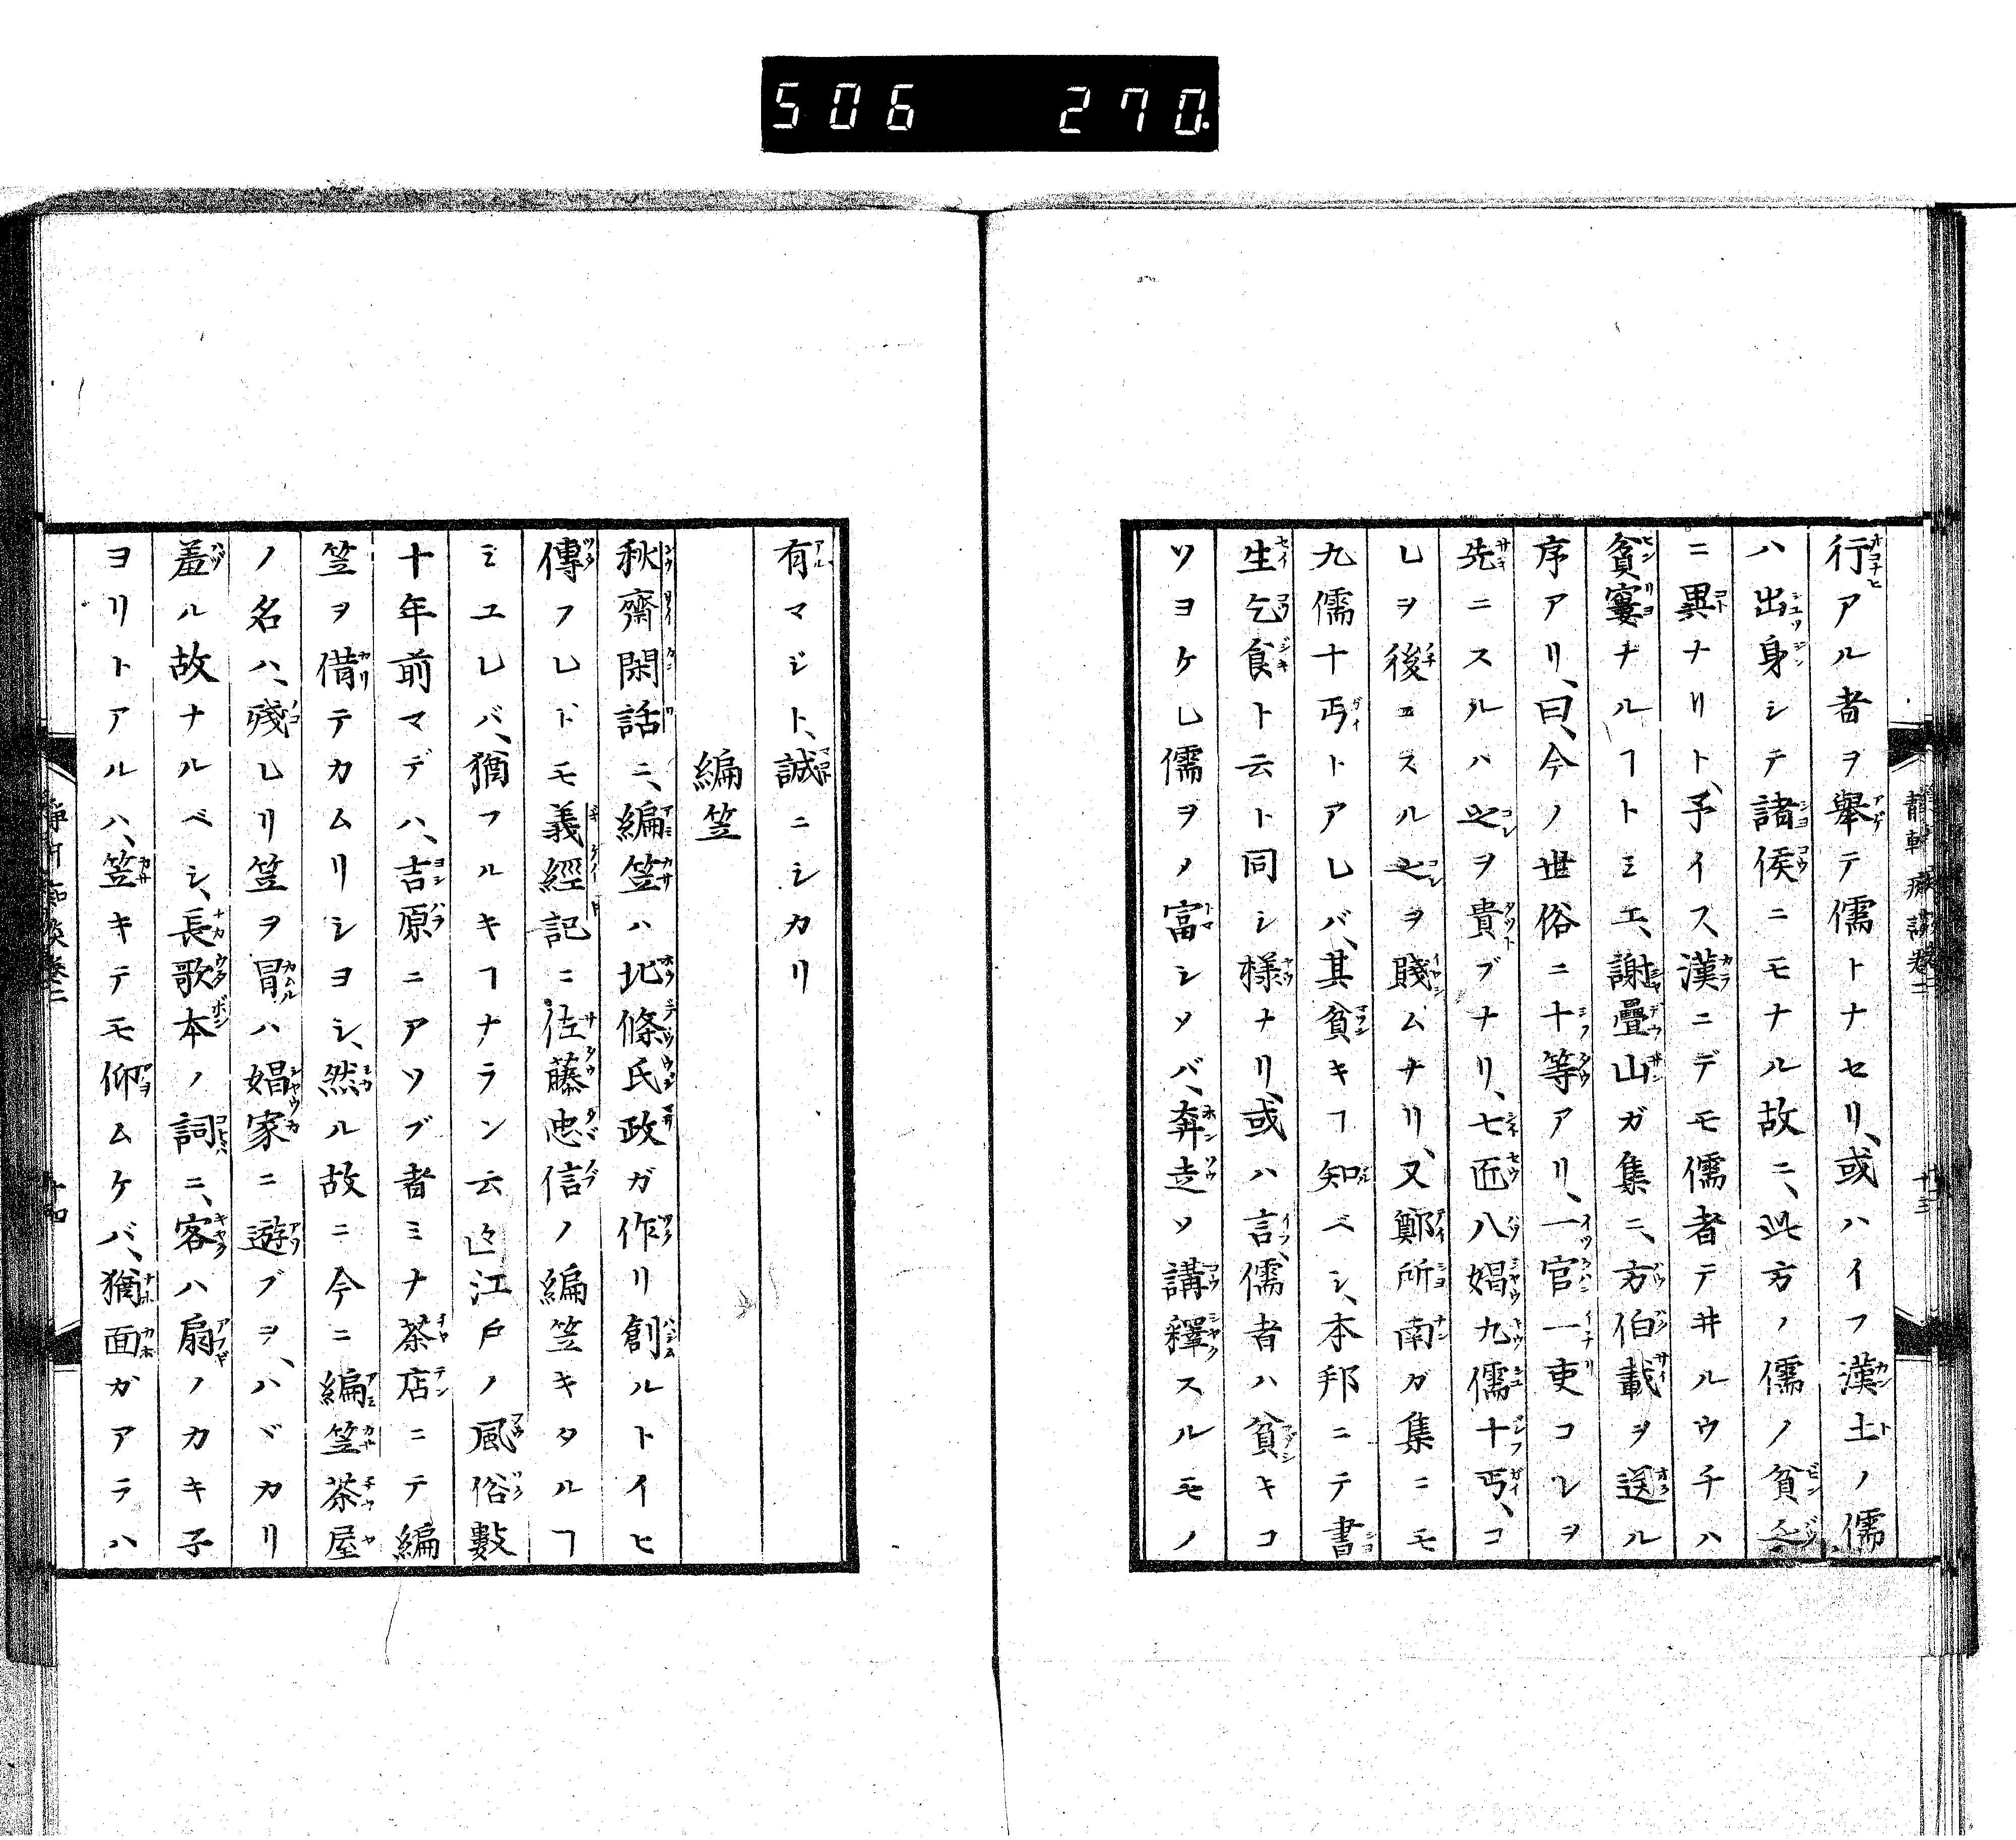 506 270.
行アル者ヲ擧テ儒トナセリ、或ハイフ漢土ノ儒
ハ出身シテ諸侯ニモナル故ニ、此方ノ儒ノ貧乏
ニ異ナリト、予イス、漢ニデモ儒者テ井ルウチハ
貧窶ナルヿトミエ、謝疊山ガ集ニ、方伯載ヲ送ル
序アリ、曰、今ノ世俗ニ十等アリ、一官一吏コレヲ
先ニスルハ之ヲ貴ブナリ、七匠八娼九儒十丐、コ
レヲ後ニスル之ヲ賤ムナリ、又鄭所南ガ集ニモ
九儒十丐トアレバ、其貧キヿ知ベシ、本邦ニテ書
生乞食ト云ト同シ樣ナリ、或ハ言、儒者ハ貧キコ
ソヨケレ儒ヲノ富シソバ、奔走ソ講釋スルモノ
有マジト、誠ニシカリ
編笠
秋齋閑話ニ、編笠ハ北條氏政ガ作リ創ルトイヒ
傳フレドモ義經記ニ佐藤忠信ノ編笠キタルヿ
ミユレバ、猶フルキヿナラン云〻江戸ノ風俗數
十年前マデハ、吉原ニアソブ者ミナ茶店ニテ編
笠ヲ借テカムリシヨシ、然ル故ニ今ニ編笠茶屋
ノ名ハ、殘レリ笠ヲ冒ハ娼家ニ遊ブヲ、ハヾカリ
羞ル故ナルベシ、長歌本ノ詞ニ、客ハ扇ノカキ子
ヨリトアルハ、笠キテモ仰ムケバ、猶面ガアラハ